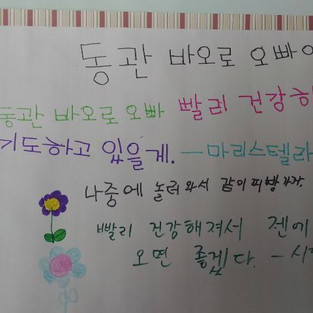 동관 바오로 오빠에
동관 바오로 오빠 빨리 건강하
기도하고 있을게. - 마리스텔라
나중에 놀러 와서 같이 피빙가자.
빨리 건강해져서 젠에
오면 좋겠다. - 시